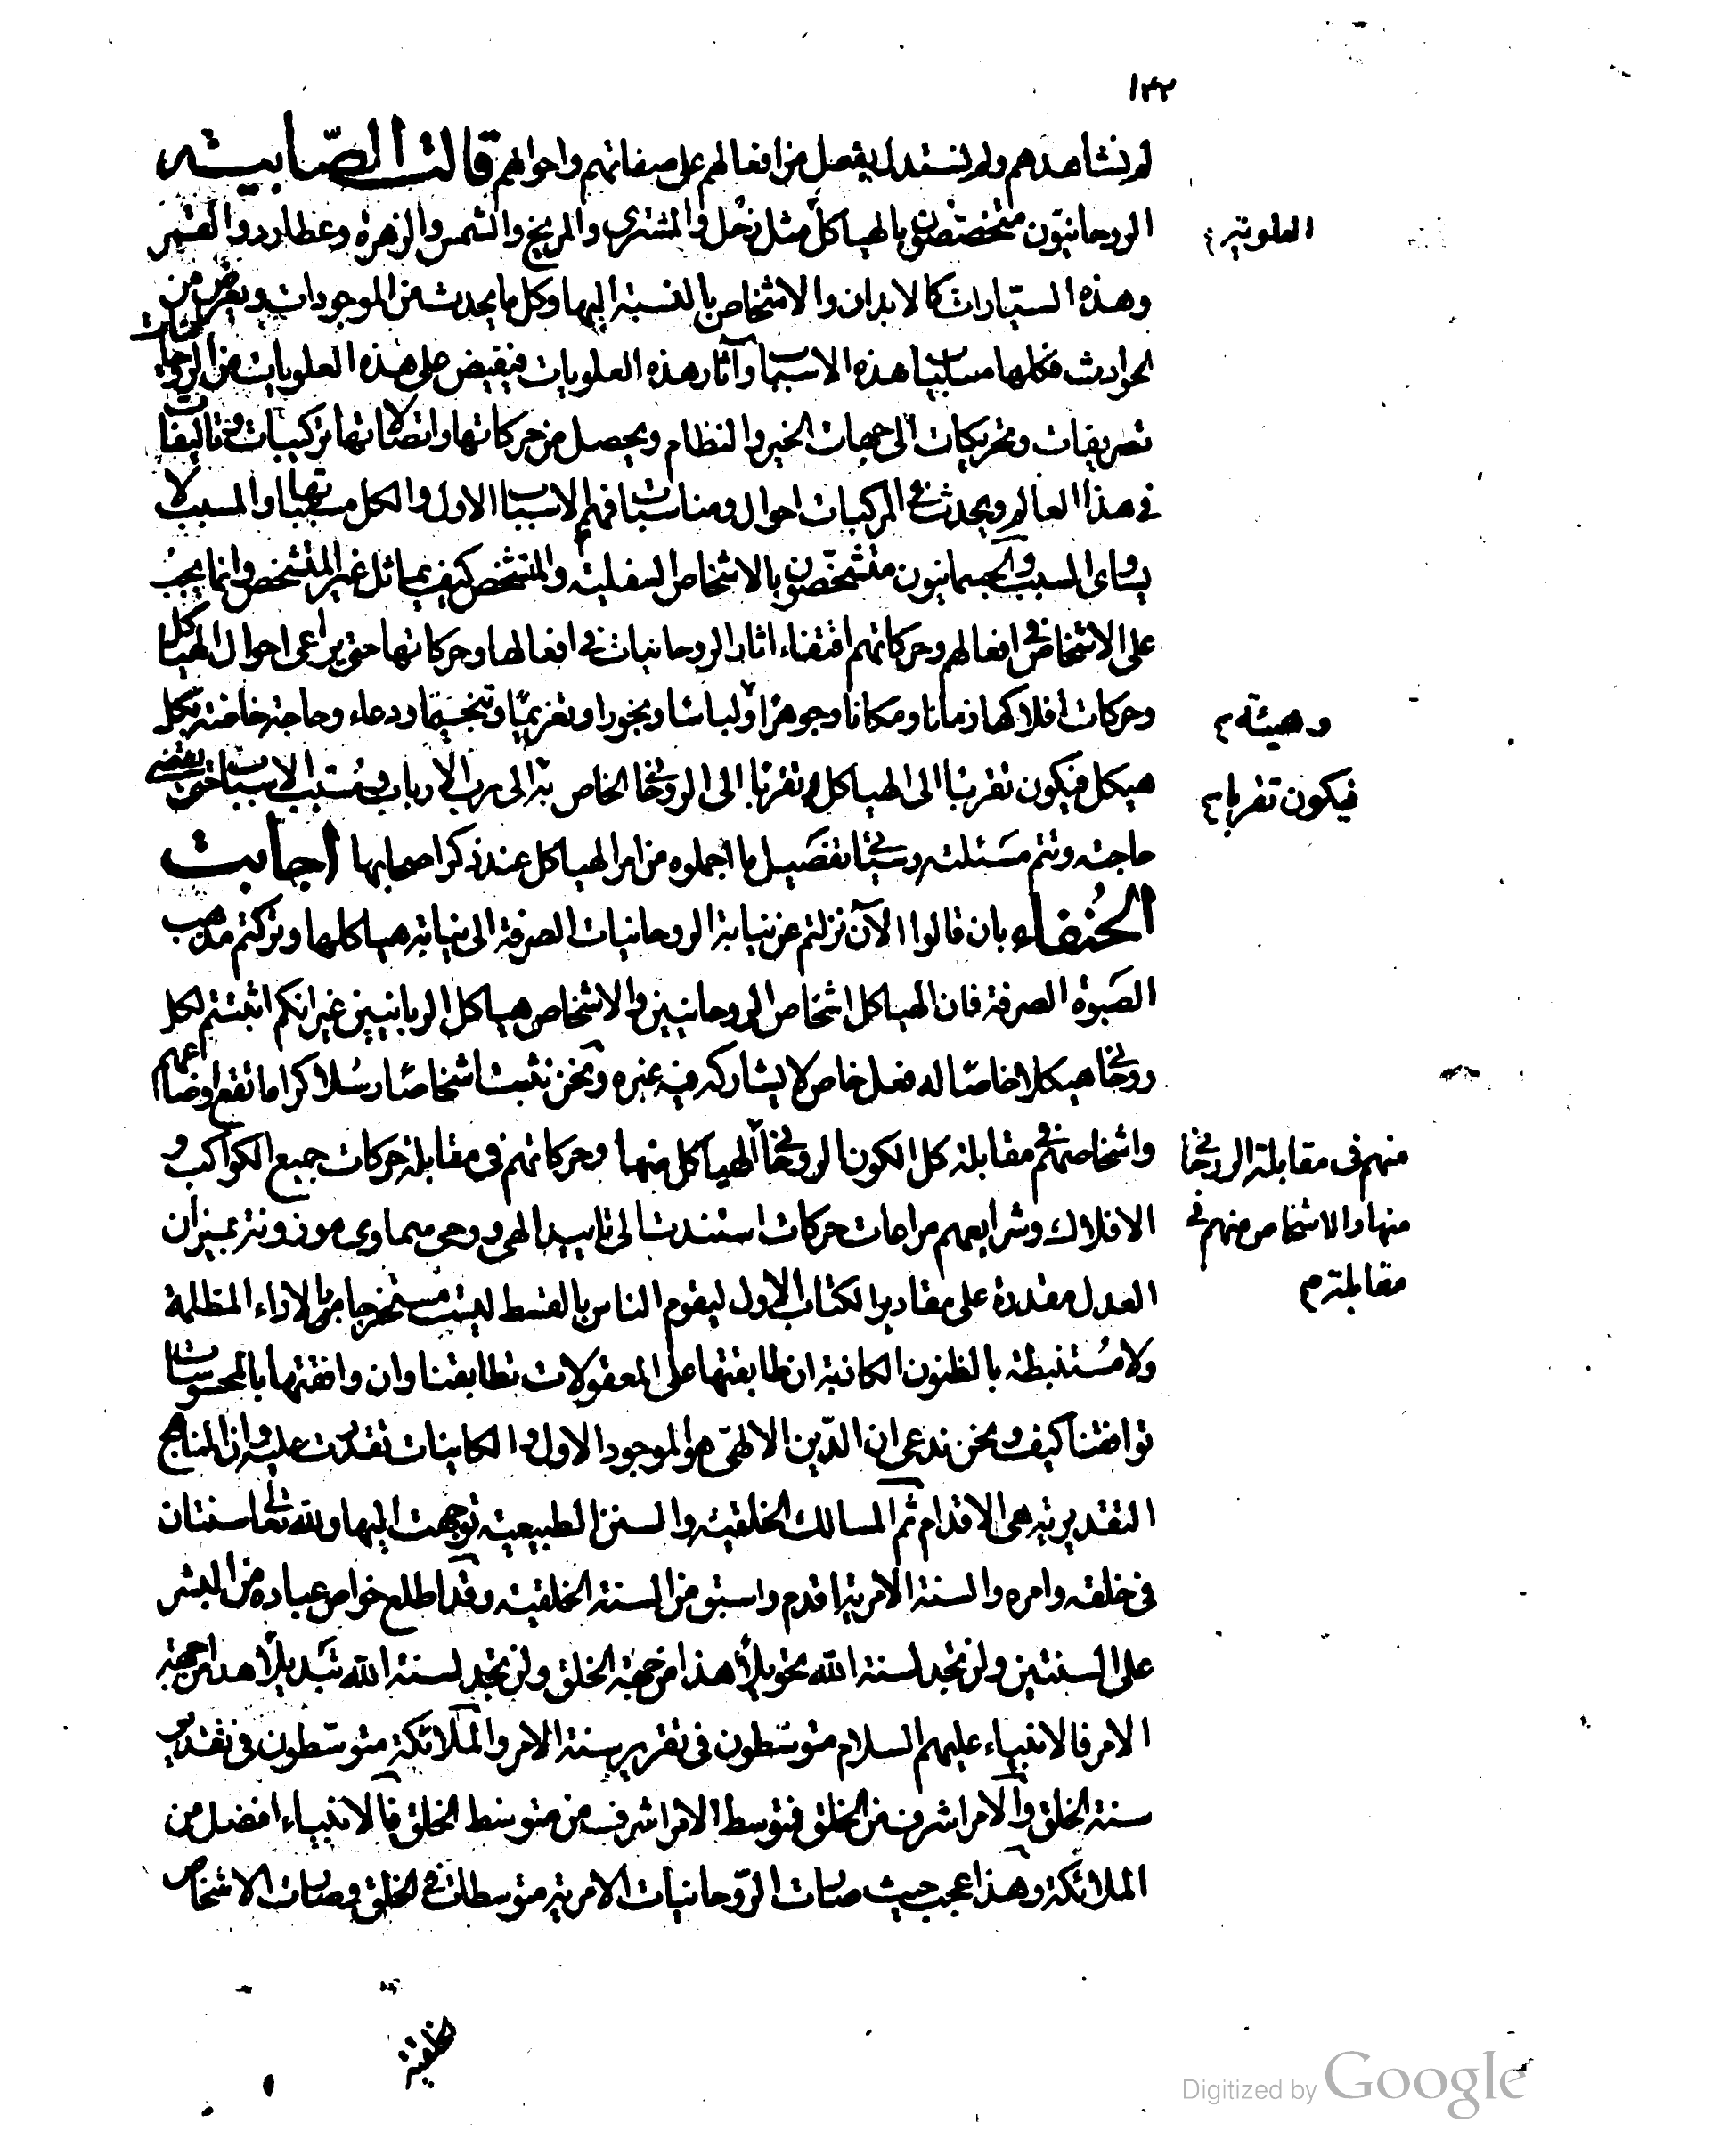 ١٣٢
لم نشاهدهم ولم نستدل بفصل من افعالهم على صفاتهم واحوالهم قالت الصّابيئه
الروحانيّون متخصّصون بالهياكل مثل زحل والمشتري والمريخ والشمس والزهرة وعطارد والقمر
العلوية
وهذه السيّارات كالابدان والاشخاص بالنسبة اليها وكل ما يحدث من الموجودات ويعرض من
الحوادث فكلها مسببات هذه الاسباب وآثار هذه العلويات فيفيض على هذه العلويات من الروحانيات
تصريفات وتحريكات الى جهات الخير والنظام ويحصل من حركاتها واتصالاتها تركيبات وتاليفات
في هذا العالم ويحدث في المركبات احوال ومناسبات فهم الاسباب الاول والكل مسبباتها والمسبب لا
يساوى المسبب والجسمانيون متشخّصون بالاشخاص السفلية والمتشخص كيف يماثل غير المتشخص وانما يجب
على الاشخاص في افعالهم وحركاتهم اقتفاء اثار الروحانيات في افعالها وحركاتها حتى يراعى احوال الهياكل
وحركات افلاكها زمانا ومكانا وجوهرا ولباسا وبخورا وتعزيما وتنجيما ودعاء وحاجة خاصة بكل
وهيئة
هيكل فيكون تقربا الى الهياكل تقربا الى الروحانى الخاص به الى رب الارباب ومسبب الاسباب حتى يقضى
فيكون تقربا
حاجته وتتم مسئلته وسيأتى تفصيل ما اجملوه من امر الهياكل عند ذكر اصحابها اجابت
الحُنفاء بان قالوا الآن نزلتم عن نيابة الروحانيات الصرفة الى نيابة هياكلها وتركتم مذهب
الصَبوة الصرفة فان الهياكل اشخاص الروحانيين والاشخاص هياكل الربانيين غير انكم اثبتتم لكل
روحانى هيكلا خاصّا له فعل خاص لا يشاركه فيه غيره ونحن نثبت اشخاصا رسلا كراما تقع اوضاعهم
واشخاصهم فى مقابلة كل الكون الروحانى الهياكل منها وحركاتهم فى مقابلة حركات جميع الكواكب و
منهم فى مقابلة الروحانى
الافلاك وشرايعهم مراعات حركات استندت الى تاييد الهى ووحى سماوى موزونة بميزان
منها والاشخاص منهم فى
مقابلة
العدل مقدرة على مقادير الكتاب الاول ليقوم الناس بالقسط ليست مستخرجة بالاراء المظلمة
ولا مُستنبطة بالظنون الكاذبة ان طابقتها على المعقولات تطابقتا وان وافقتها بالمحسوسات
توافقتا كيف ونحن ندعى ان الدّين الالهىّ هو الموجود الاول والكاينات تقدرت عليه وان المناهج
التقديرية هى الاقدم ثم المسالك الخلقية والسنن الطبيعية توجهت اليها ولله تعالى سنتان
فى خلقه وامره والسنة الامرية اقدم واسبق من السنة الخلقية وقد اطلع خواص عباده من البشر
على السنتين ولن تجد لسنة الله تحويلا هذا من جهة الخلق ولن تجد لسنة الله تبديلا هذا من جهة
الامر فالانبياء عليهم السلام متوسّطون فى تقرير سنة الامر والملائكة متوسّطون فى تقدير
سنة الخلق والامر اشرف من الخلق فمتوسط الامر اشرف من متوسط الخلق فالانبياء افضل من
الملائكة وهذا عجب حيث صارت الروحانيات الامرية متوسطات فى الخلق وصارت الاشخاص
الخلقية
Digitized by Google